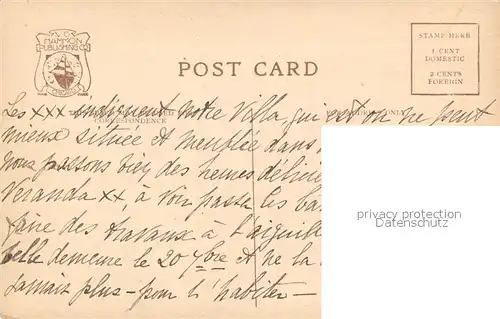 V.O.
HAMMON
PUBLISHING CO
CHICAGO
POST CARD
STAMP HERE
1 CENT
DOMESTIC
2 CENTS
FOREIGN
CORRESPONDENCE
ONLY
Les XXX indiquent notre Villa, qui est on ne peut
mieux située et meublée dans
nous passons bien des heures
Veranda XX, à voir passer les
faire des travaux à l'aiguille
belle demeure le 20 7bre et ne la
jamais plus – pour l'habiter –
privacy protection
Datenschutz